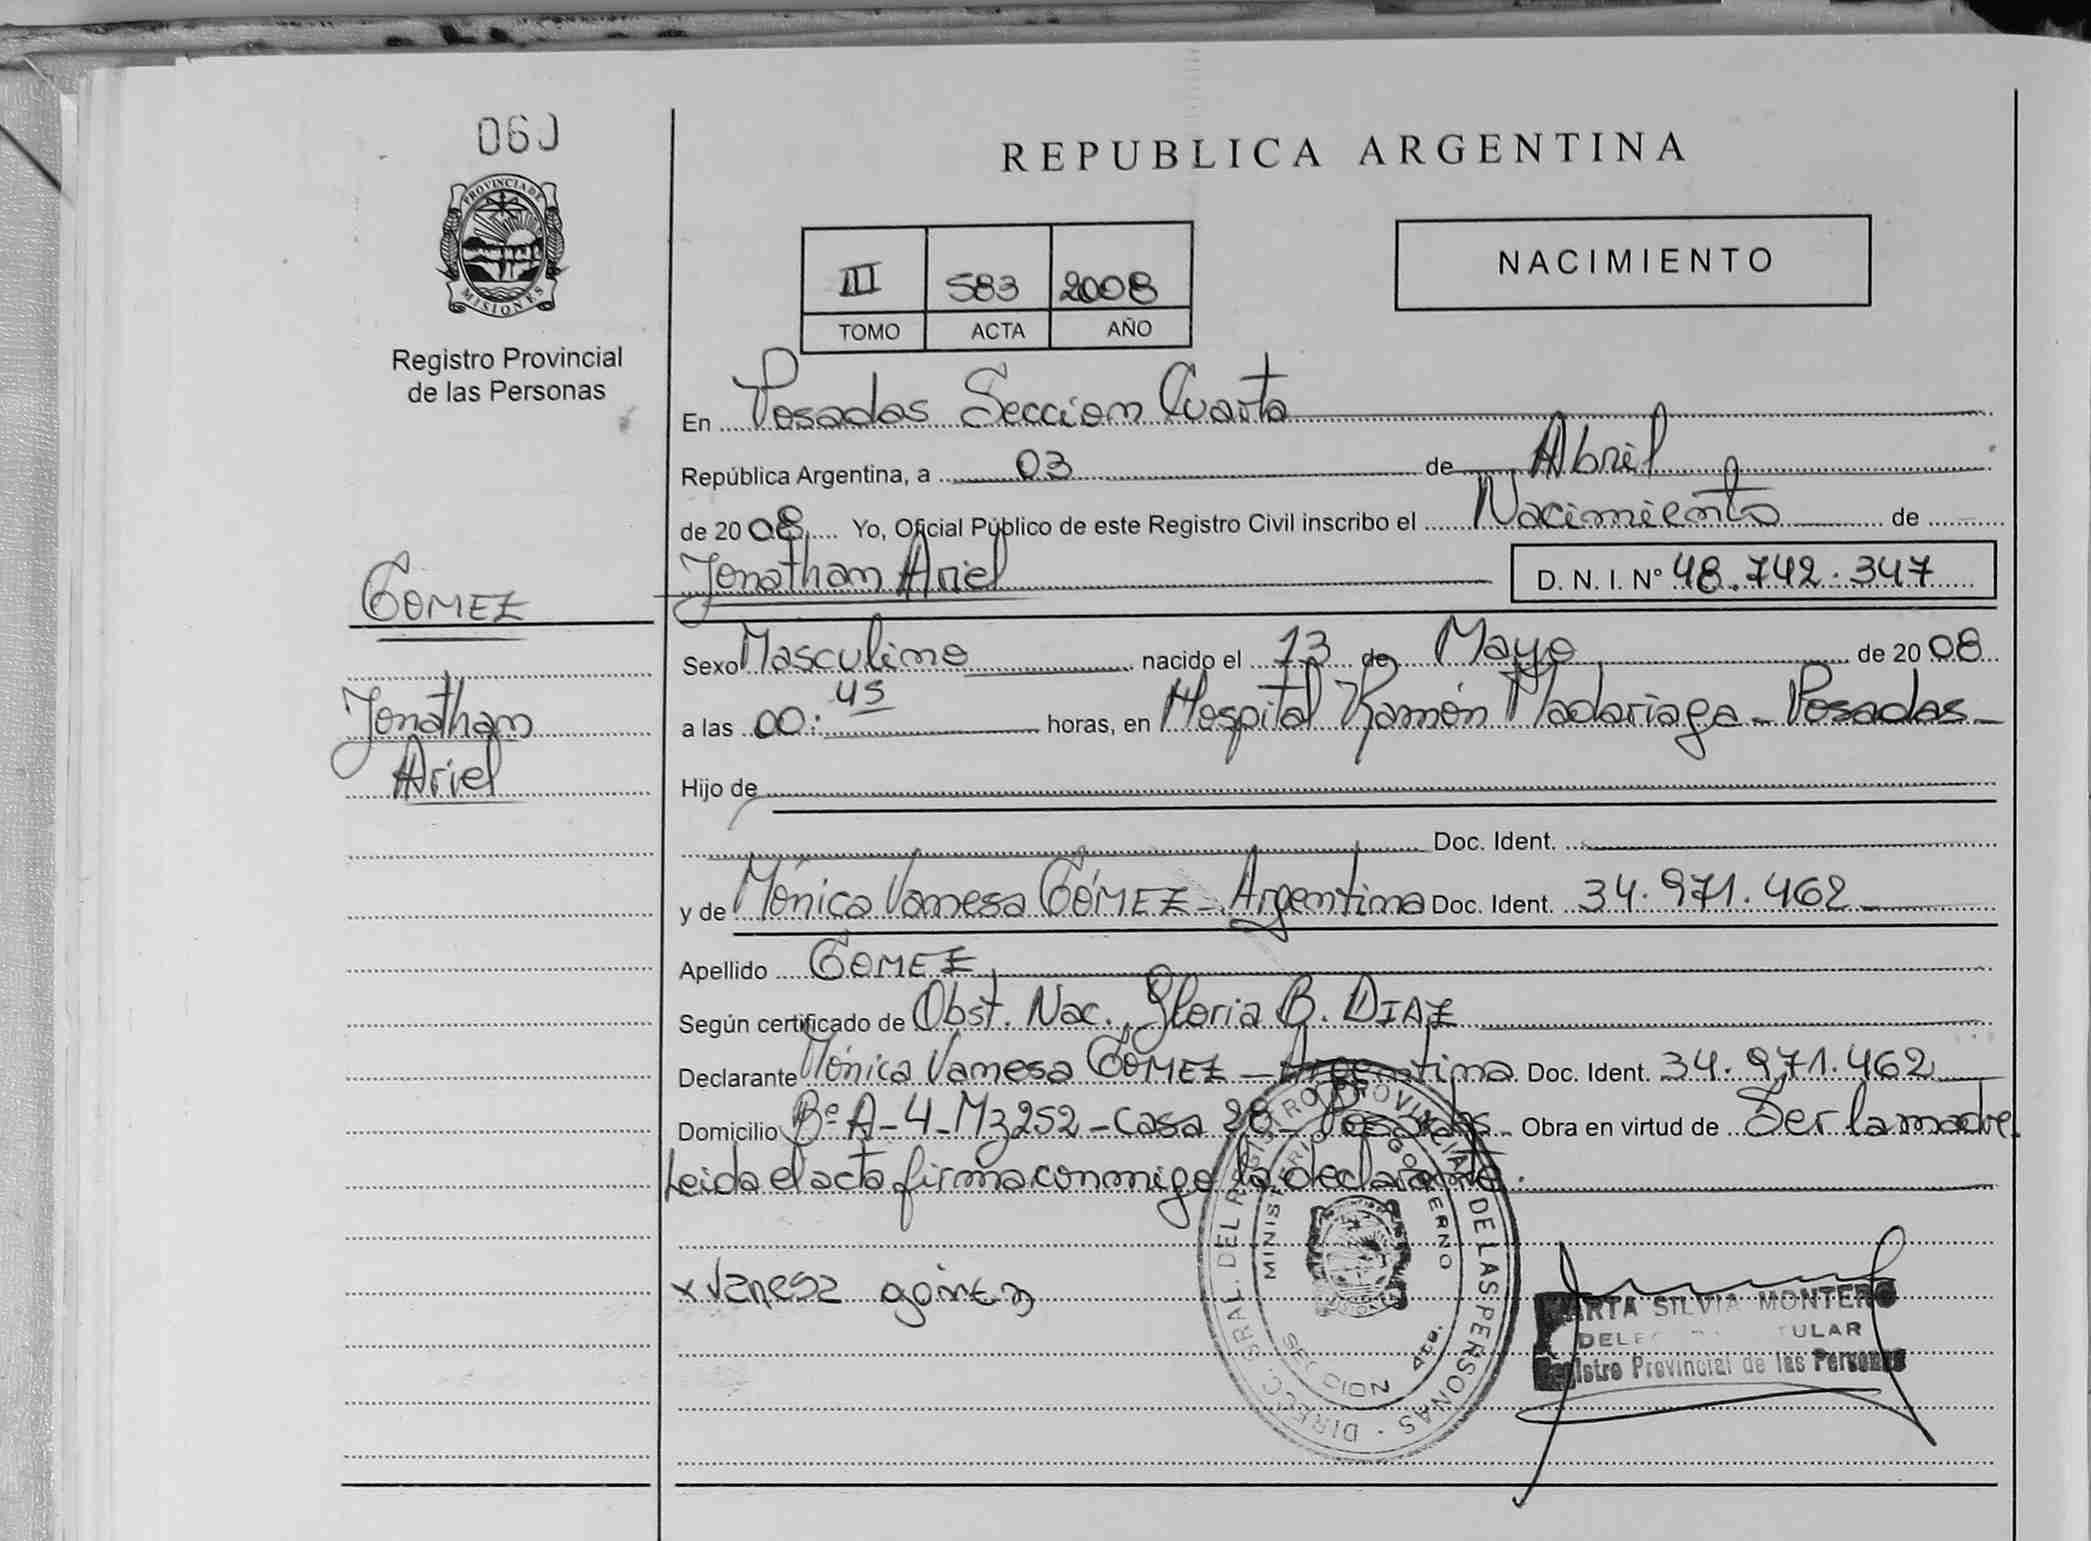 060
PROVINCIA DE
MISIONES
Registro Provincial
de las Personas
GOMEZ
Jonathan
Ariel
REPUBLICA ARGENTINA
III 583 2008
TOMO ACTA AÑO
NACIMIENTO
En Posadas Seccion Cuarta
República Argentina, a 03 de Abril
de 2008 Yo, Oficial Público de este Registro Civil inscribo el Nacimiento de
Jonathan Ariel D. N. I. Nº 48.742.347
Sexo Masculino nacido el 13 de Mayo de 2008
a las 00:45 horas, en Hospital Ramón Madariaga - Posadas -
Hijo de
Doc. Ident.
y de Mónica Vanesa GÓMEZ - Argentina Doc. Ident. 34.971.462
Apellido GOMEZ
Según certificado de Obst. Nac. Gloria B. DIAZ
Declarante Mónica Vanesa GOMEZ - Argentina Doc. Ident. 34.971.462
Domicilio Bº A-4-Mz252-casa 28- Posadas- Obra en virtud de Ser la madre.
Leida el acta firma conmigo la declarante.
x Vanesa gómez
DIRECC. GRAL. DEL REGISTRO PROVINCIAL DE LAS PERSONAS
MINISTERIO GOBIERNO
SECCION 4ta.
MARTA SILVIA MONTERO
TULAR
Registro Provincial de las Personas